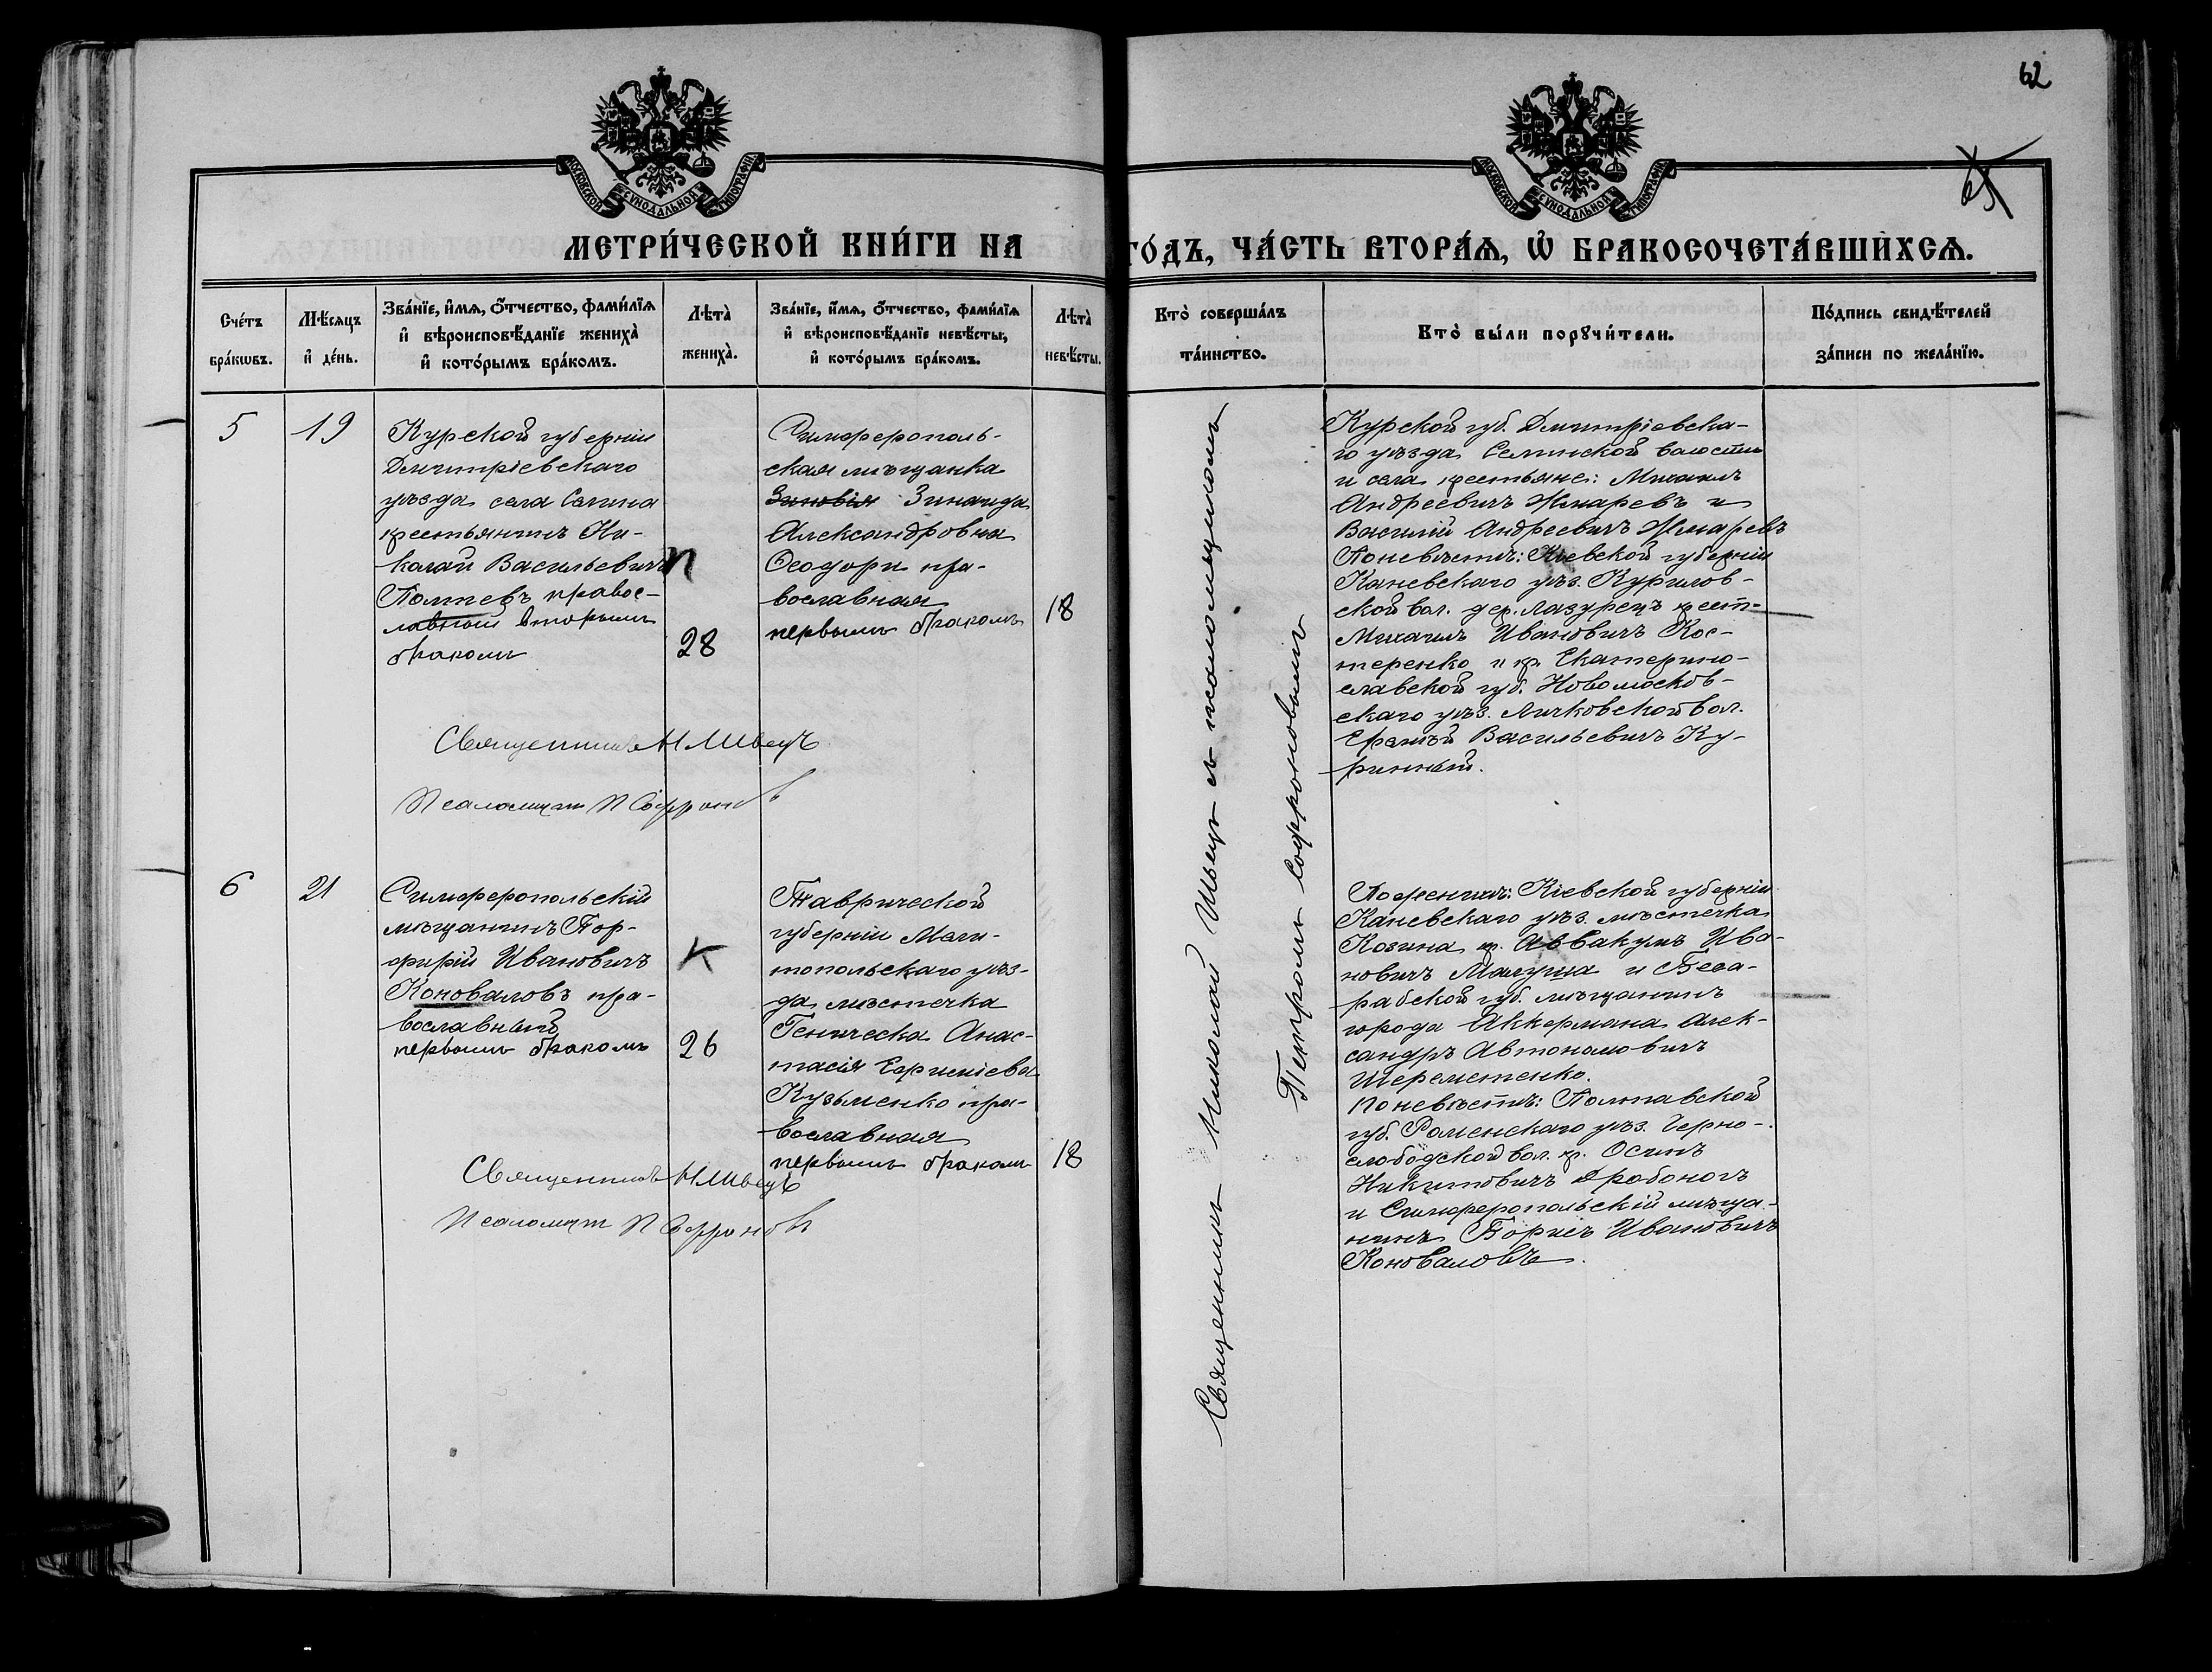 62
МОСКОВСКОЙ СѴНОДАЛЬНОЙ ТИПОГРАФІИ
МОСКОВСКОЙ СѴНОДАЛЬНОЙ ТИПОГРАФІИ
МЕТРИ́ЧЕСКОЙ КНИ́ГИ НА ГО́ДЪ, ЧА́СТЬ ВТОРА́Ѧ, Ѡ҆ БРАКОСОЧЕТА́ВШИХСѦ.
Сче́тъ
бра́кѡвъ.
Мѣ́сѧцъ
и҆ де́нь.
Зва́нїе, и҆́мѧ, ѻ҆́тчество, фами́лїѧ
и҆ вѣроисповѣ́данїе жениха̀
и҆ кото́рымъ бра́комъ.
Лѣта̀
жениха̀.
Зва́нїе, и҆́мѧ, ѻ҆́тчество, фами́лїѧ
и҆ вѣроисповѣ́данїе невѣ́сты,
и҆ кото́рымъ бра́комъ.
Лѣта̀
невѣ́сты.
Кто̀ соверша́лъ
та́инство.
Кто̀ бы́ли порꙋчи́тели.
По́дпись свидѣ́телей
за́писи по жела́нїю.
5
19
Курской губерніи
Дмитріевскаго
уѣзда села Селина
крестьянинъ Ни-
колай Васильевичъ
православный вторымъ
бракомъ
п
28
Симферополь-
ская мѣщанка
Зиновія Зинаида
Александровна
Феодори пра-
вославная
первымъ бракомъ
18
Священникъ Н Швецъ
Псаломщик П Софроновъ
Священникъ Николай Швецъ съ псаломщикомъ
Петромъ Софроновымъ
Курской губ. Дмитріевска-
го уѣзда Селинской волости
и села крестьяне: Михаилъ
Андреевичъ и
Василій Андреевичъ
По невѣстѣ: Кіевской губерніи
Каневскаго уѣз. Курилов-
ской вол. дер. Лазурецъ крест.
Михаилъ Ивановичъ Кос-
теренко и кр. Екатерино-
славской губ. Новомосков-
скаго уѣз. Личковской вол.
Васильевичъ Ку-
ринный.
6
21
Симферопольскій
мѣщанинъ Пор-
фирій Ивановичъ
Коноваловъ пра-
вославный
первымъ бракомъ
К
26
Таврической
губерніи Мели-
топольскаго уѣз-
да мѣстечка
Геническа Анас-
тасія Евфиміева
Кузьменко пра-
вославная
первымъ бракомъ
18
Священникъ Н Швецъ
Псаломщик П Софроновъ
По женихѣ: Кіевской губерніи
Каневскаго уѣз. мѣстечка
Козина кр. Аввакумъ Ива-
новичъ Малуша и Бесса-
рабской губ. мѣщанинъ
города Аккермана Алек-
сандръ Автономовичъ
Шереметенко.
По невѣстѣ: Полтавской
губ. Роменскаго уѣз. Черно-
слободской вол. кр. Осипъ
Никитовичъ Дробоногъ
и Симферопольскій мѣща-
нинъ Борисъ Ивановичъ
Коноваловъ.